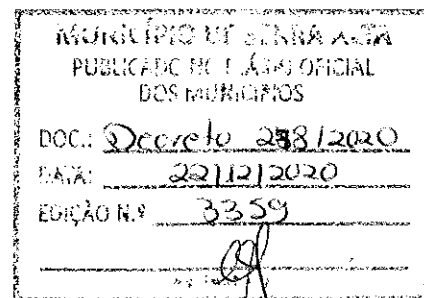 MUNICÍPIO DE SERRA ALTA
PUBLICADO NO DIÁRIO OFICIAL
DOS MUNICÍPIOS
DOC.: Decreto 298/2020
DATA: 22/12/2020
EDIÇÃO N.º 3359